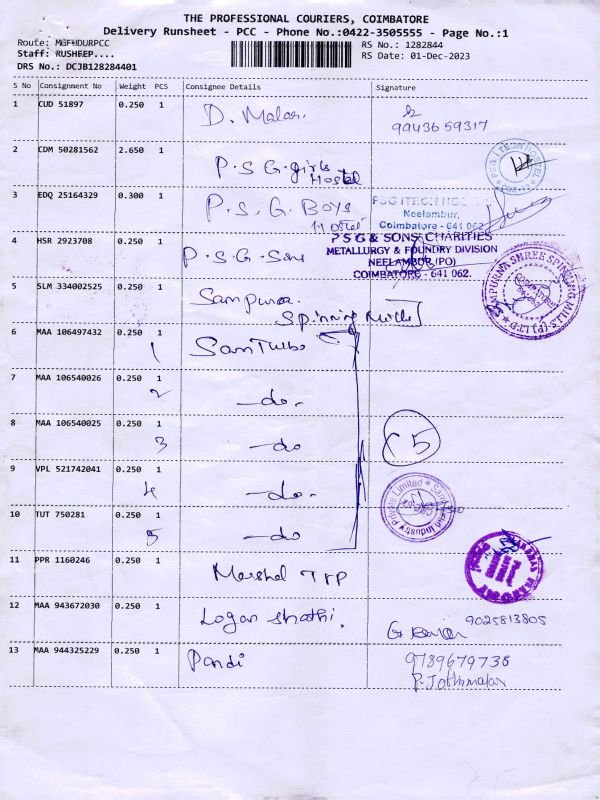 THE PROFESSIONAL COURIERS, COIMBATORE
Delivery Runsheet - PCC - Phone No.:0422-3505555 - Page No.:1
Route: MGFHDURPCC RS No.: 1282844
Staff: RUSHEEP.... RS Date: 01-Dec-2023
DRS No.: DCJB128284401
S No Consignment No Weight PCS Consignee Details Signature
1 CUD 51897 0.250 1 D. Malar.
9943659317
2 CDM 50281562 2.650 1 P.S.G. girls Hostel
PSG ITECH HOSTEL
3 EDQ 25164329 0.300 1 P.S.G. Boys
PSG ITECH HOSTEL
Neelambur,
Coimbatore - 641 062
4 HSR 2923708 0.250 1 P.S.G. Sons
P S G & SONS' CHARITIES
METALLURGY & FOUNDRY DIVISION
NEELAMBUR (PO)
COIMBATORE - 641 062.
5 SLM 334002525 0.250 1 Sampurna
Spinning Mills
SAMPURNA SHREE SPINNING MILLS (P) LTD
6 MAA 106497432 0.250 1 1
7 MAA 106540026 0.250 1 2 -do-
8 MAA 106540025 0.250 1 3 -do
5
9 VPL 521742041 0.250 1 4 -do-
10 TUT 750281 0.250 1 5 -do
Private Limited
11 PPR 1160246 0.250 1 Marshal
12 MAA 943672030 0.250 1 Logan
9025813805
13 MAA 944325229 0.250 1 Pandi
9789679738
P. Jothimalar